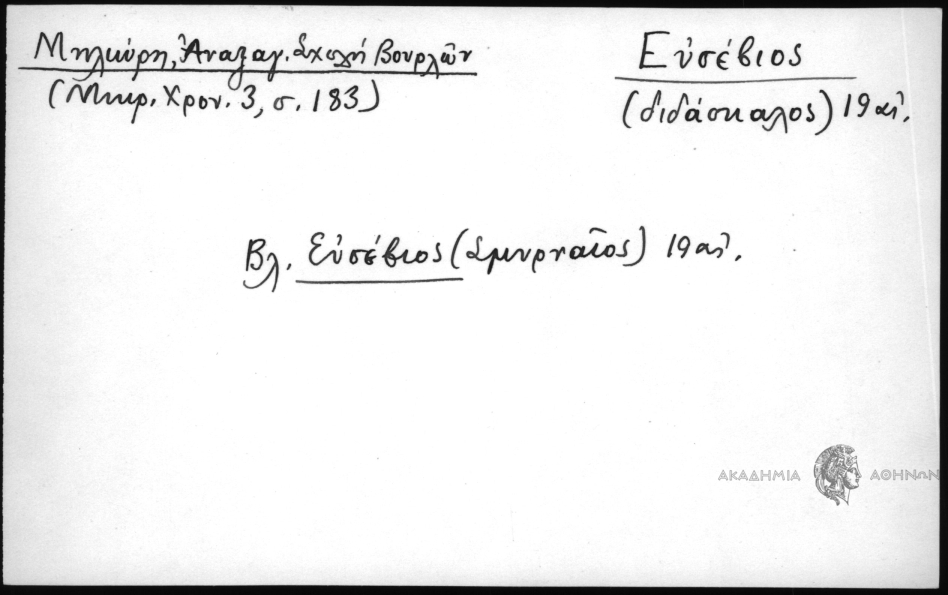 Μηλιώρη, Ἀναξαγ. Σχολή Βουρλῶν
(Μικρ. Χρον. 3, σ. 183)
Εὐσέβιος
(διδάσκαλος) 19 αἰ.
Βλ. Εὐσέβιος (Σμυρναῖος) 19 αἰ.
ΑΚΑΔΗΜΙΑ ΑΘΗΝΩΝ